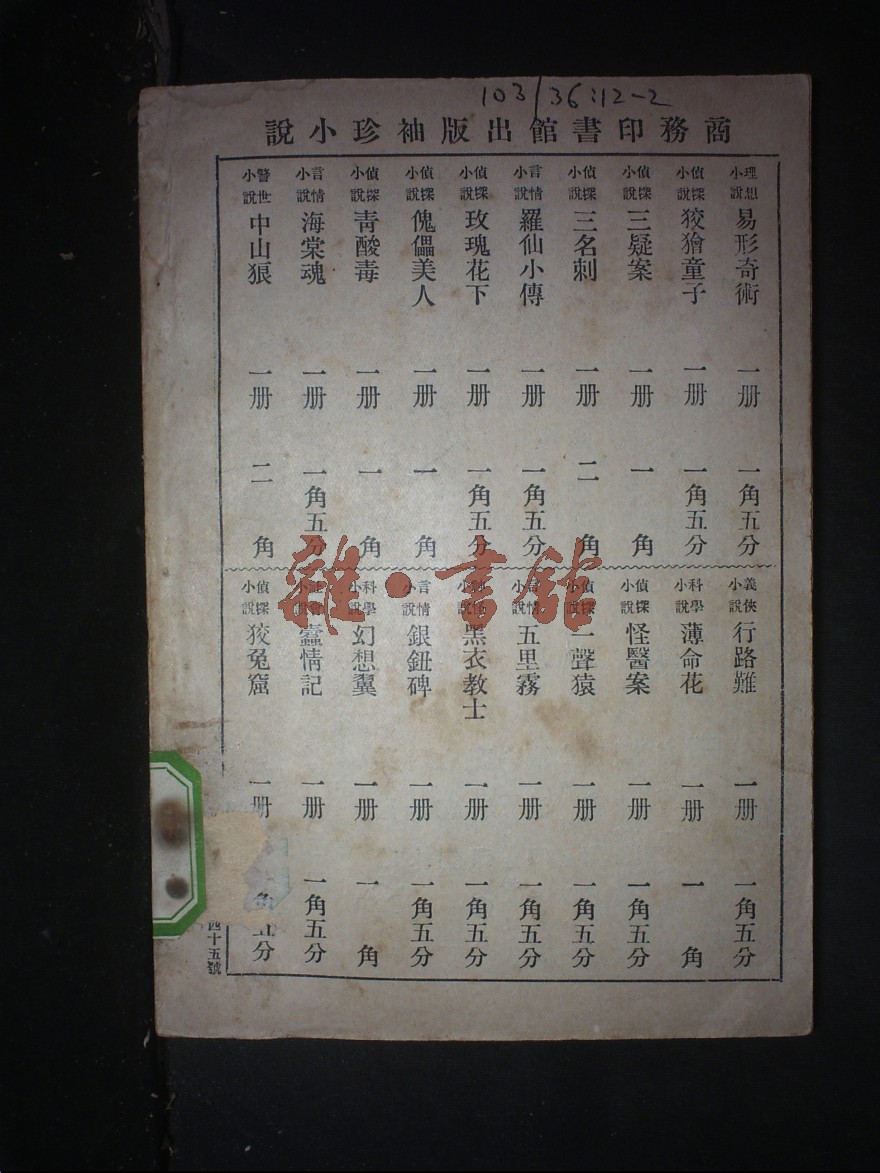 103/36:12-2
商務印書館出版袖珍小說
理想小說 易形奇術 一册 一角五分
偵探小說 狡獪童子 一册 一角五分
偵探小說 三疑案 一册 一角
偵探小說 三名刺 一册 二角
言情小說 羅仙小傳 一册 一角五分
偵探小說 玫瑰花下 一册 一角五分
偵探小說 傀儡美人 一册 一角
偵探小說 青酸毒 一册 一角
言情小說 海棠魂 一册 一角五分
警世小說 中山狼 一册 二角
義俠小說 行路難 一册 一角五分
科學小說 薄命花 一册 一角
偵探小說 怪醫案 一册 一角五分
偵探小說 一聲猿 一册 一角五分
言情小說 五里霧 一册 一角五分
小說 黑衣教士 一册 一角五分
言情小說 銀鈕碑 一册 一角五分
科學小說 幻想翼 一册 一角
小說 蠹情記 一册 一角五分
偵探小說 狡兔窟 一册 一角五分
四十五號
雜·書館